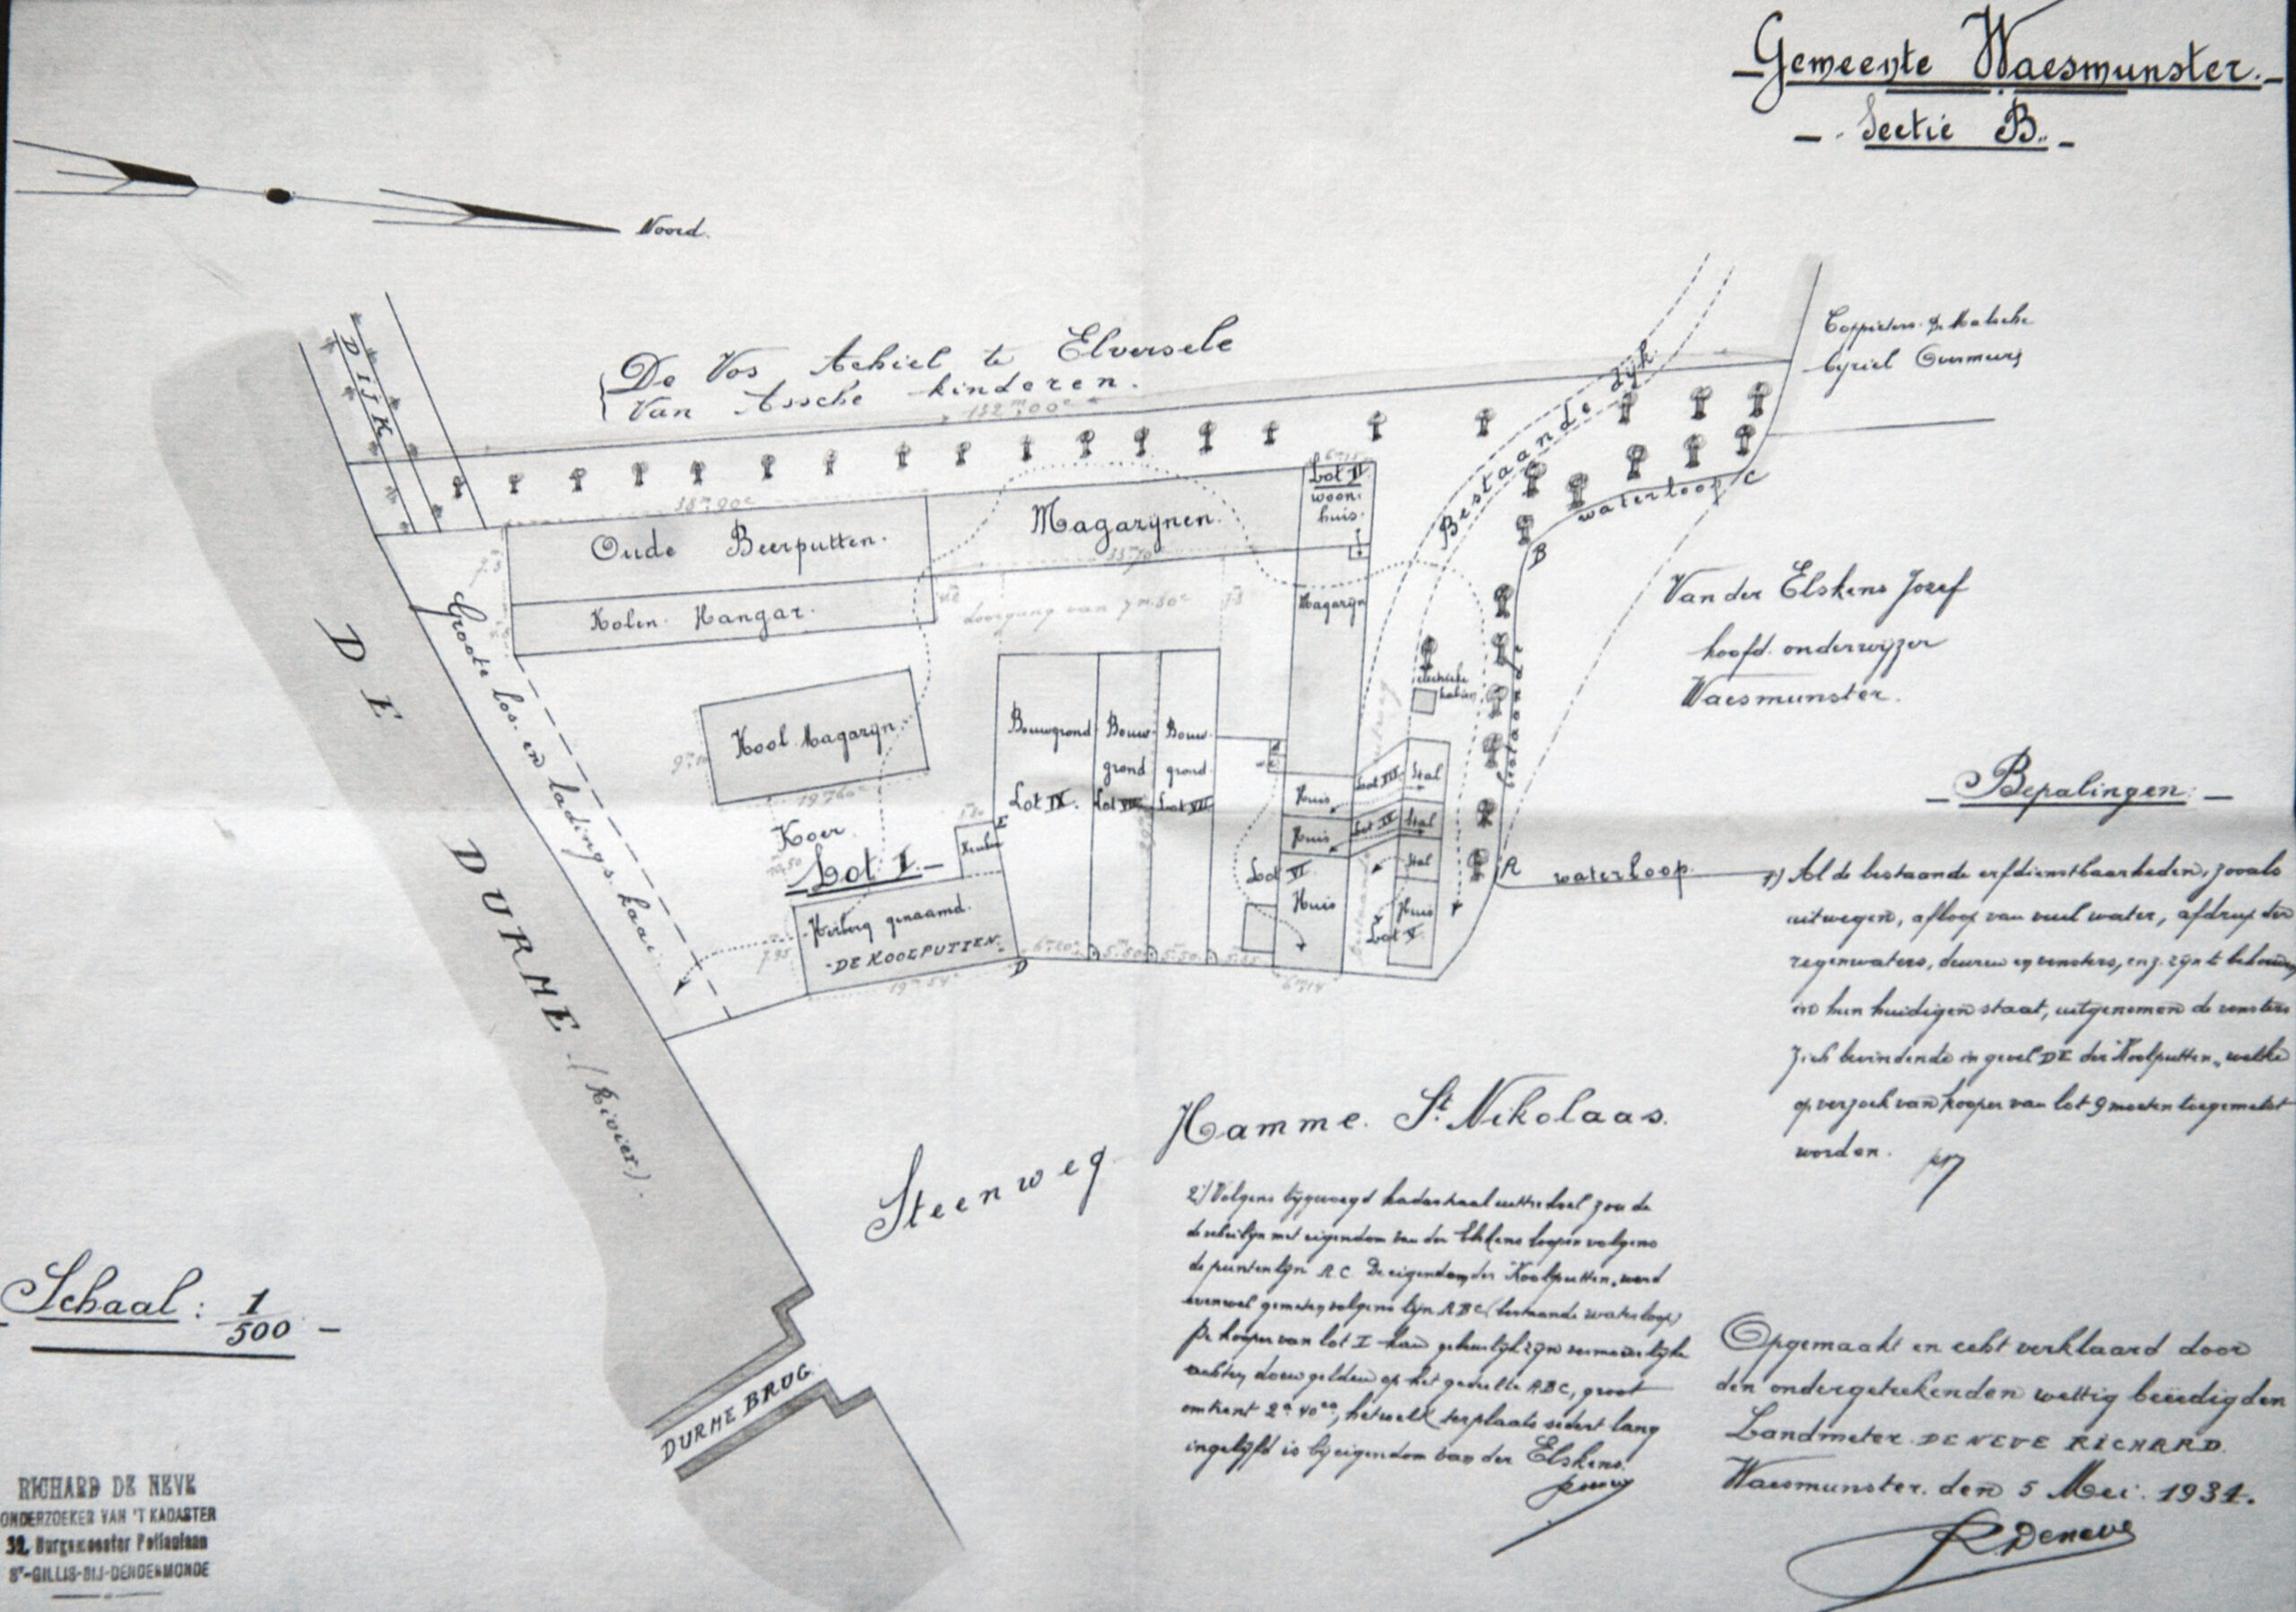 Gemeente Waesmunster.
Sectie B.
Noord.
DIJK
De Vos Achiel te Elversele
Van Assche kinderen.
152m,00c
Bestaande dijk
Cyriel Overmeire
waterloop
C
B
38m,90c
Oude Beerputten.
Kolen Hangar.
Magazijnen.
Lot II
woon-
huis.
Magazijn
doorgang van 7m.50c
Van der Elskens Jozef
hoofdonderwijzer
Waesmunster.
electrieke
kabien
Groote los en ladings kaai.
Kool Magazijn.
19m,60c
Koer.
Lot I.
Keuken
E
Herberg genaamd.
-DE KOOLPUTTEN-
7.95
19m54c
D
Bouwgrond
Lot IX.
Bouw-
grond
Lot VIII
Bouw-
grond.
Lot VII
5.50
5.50
6m14
Huis
Lot III
Stal
Huis
Lot IV
Stal
Lot VI
Huis
Stal
Huis
Lot V
bestaande
A
waterloop
DE DURME (Rivier).
Steenweg Hamme. St. Nikolaas.
DURME BRUG.
Schaal: 1/500
Bepalingen:
1) Al de bestaande erfdienstbaarheden, zooals
uitwegen, afloop van vuil water, afdrup der
regenwaters, deuren en vensters, enz. zijn te behouden
in hun huidigen staat, uitgenomen de vensters
zich bevindende in gevel DE der "Koolputten" welke
op verzoek van kooper van lot 9 moeten toegemetst
worden.
2) Volgens bijgevoegd kadastraal uittreksel zou de
de scheilijn met eigendom van der Elskens loopen volgens
de puntenlijn A.C. De eigendom der "Koolputten" werd
evenwel gemeten volgens lijn ABC (bestaande waterloop)
De kooper van lot I kan gebeurlijk zijn vermoedelijke
rechten doen gelden op het gedeelte ABC, groot
omtrent 2a 40ca, hetwelk ter plaats sedert lang
ingelijfd is bij eigendom van der Elskens.
Opgemaakt en echt verklaard door
den ondergeteekenden wettig beëedigden
Landmeter DE NEVE RICHARD.
Waesmunster. den 5 Mei. 1931.
R Deneve
RICHARD DE NEVE
ONDERZOEKER VAN 'T KADASTER
32, Burgemeester Potiaulaan
ST-GILLIS-BIJ-DENDERMONDE